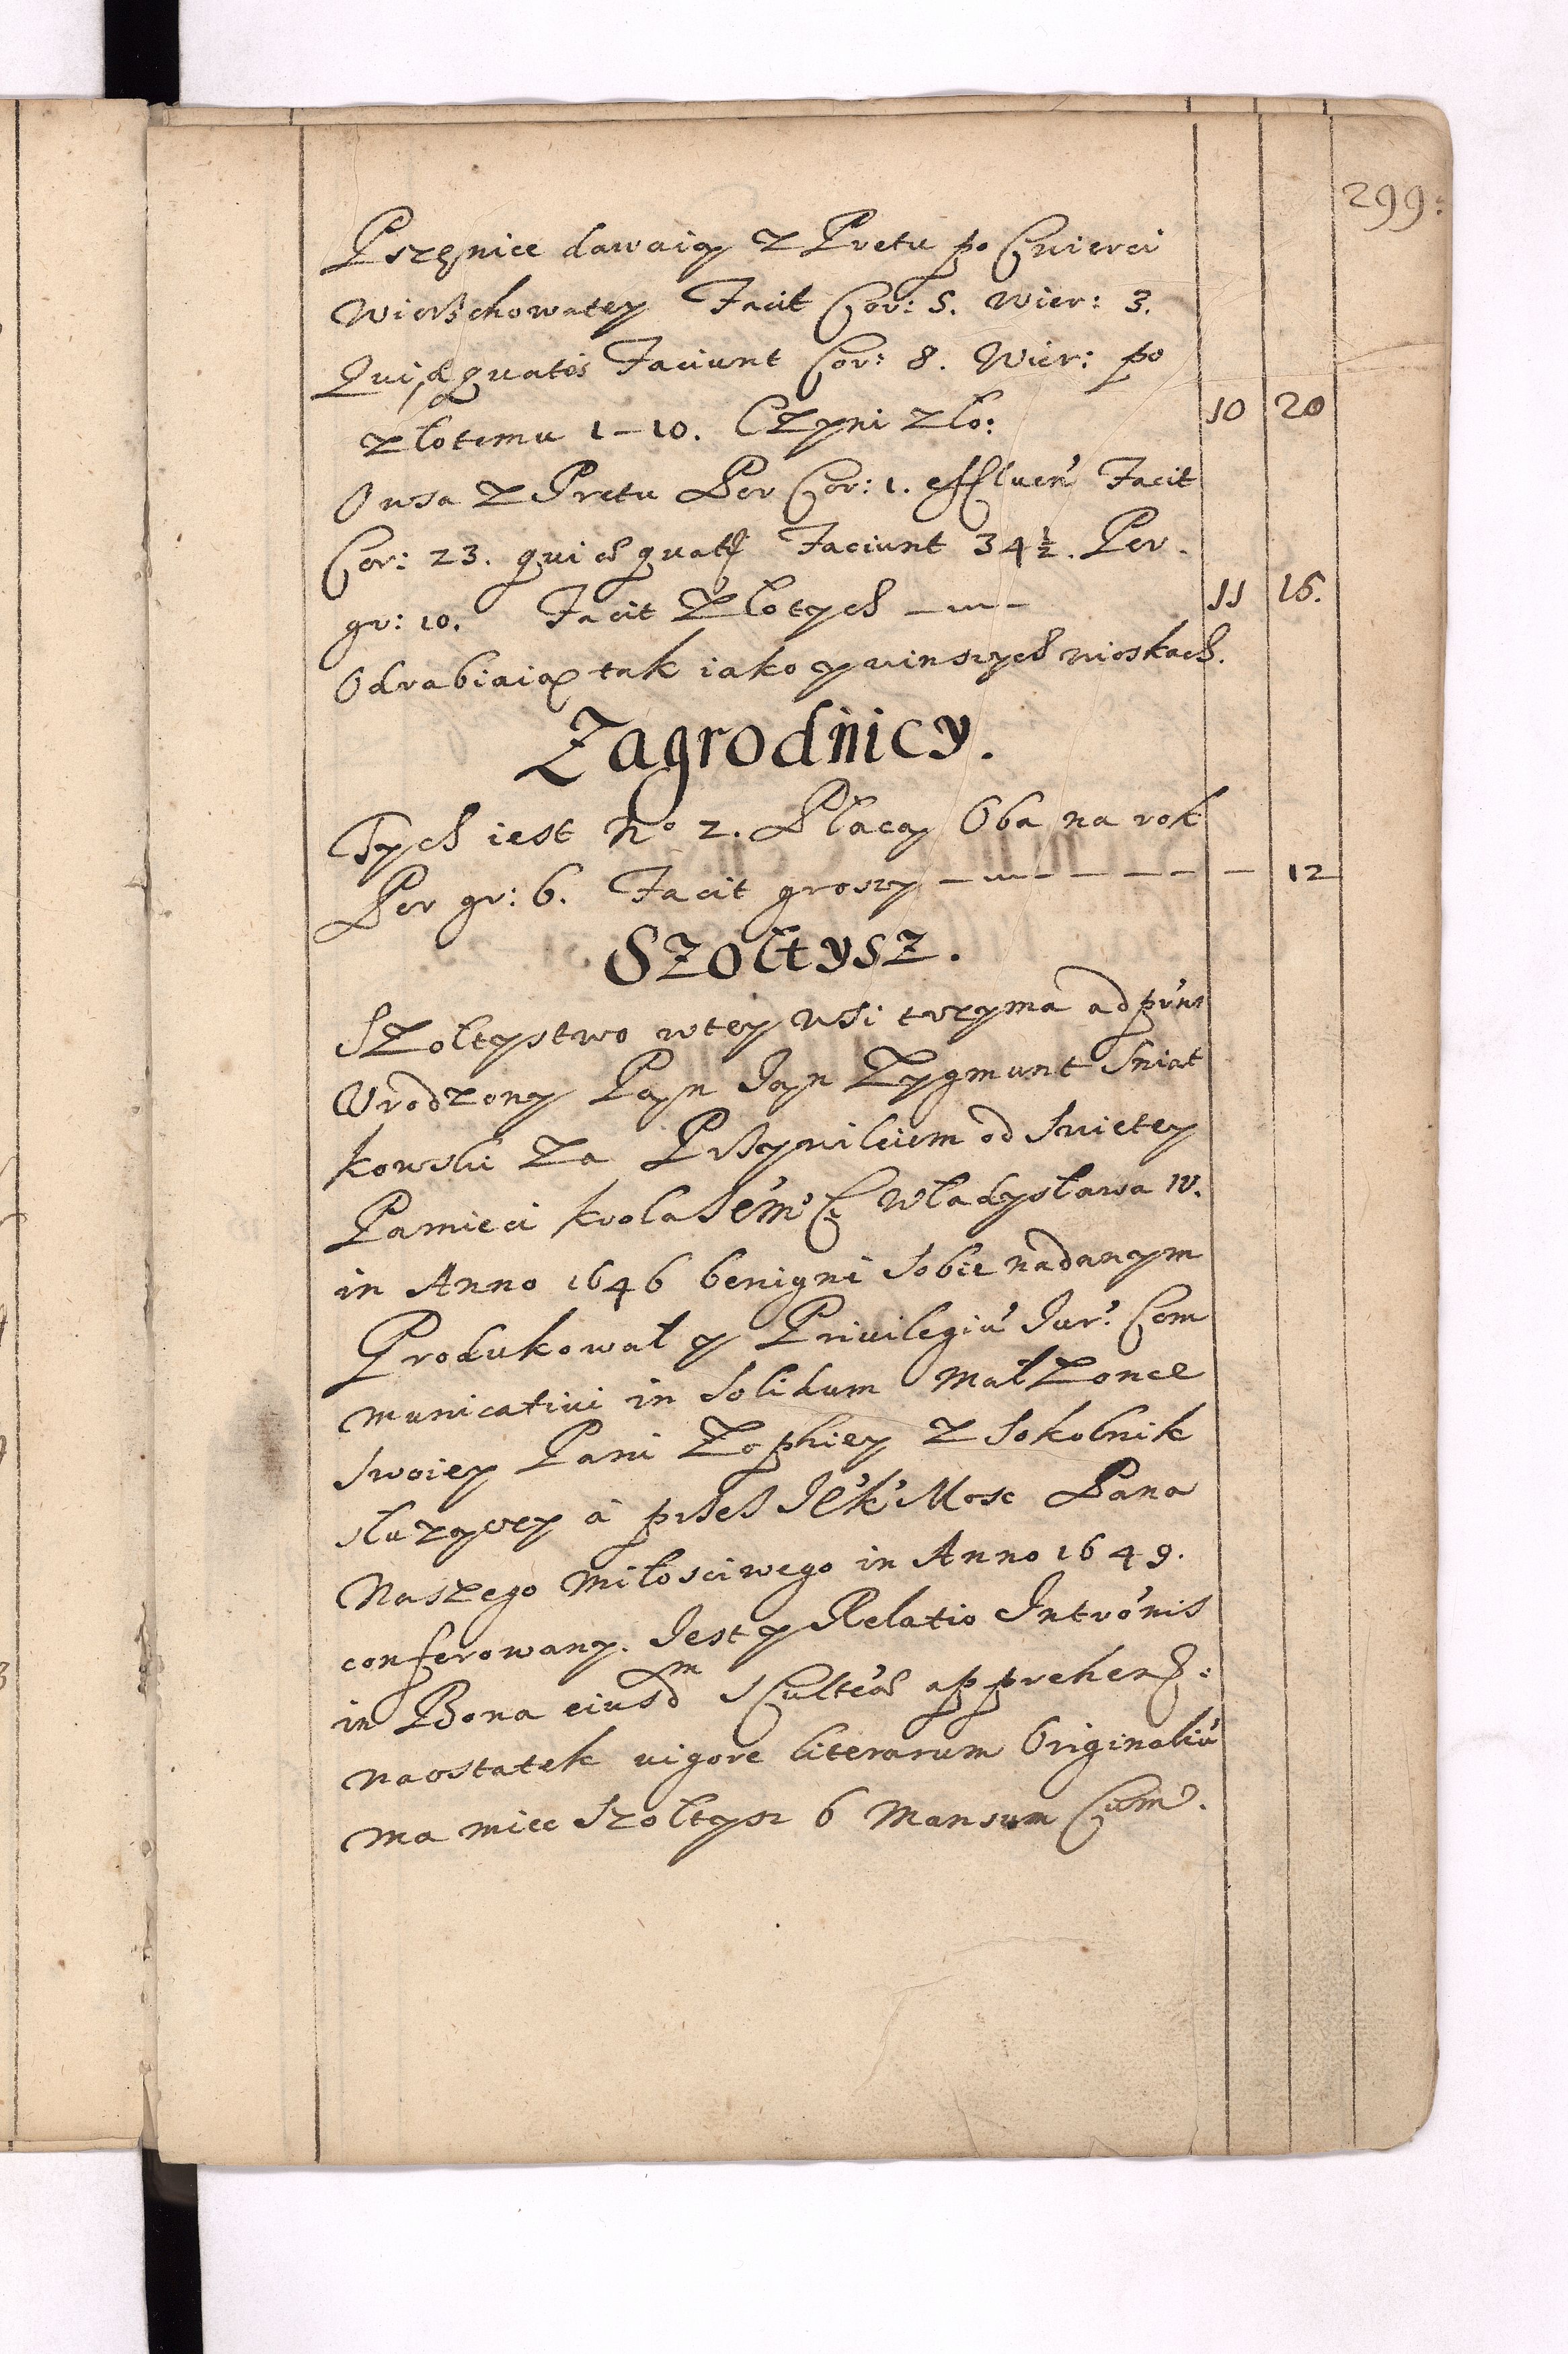 299.
Pszęnice dawaią z Prętu po Cwierci
Wierschowatey Facit Cor: 5. wier: 3.
Qui æquatis Faciunt Cor: 8. Wier: po
złotemu 1–10. Czyni zło: 10 20
Owsa z Prętu Per Cor: 1. effluen Facit
Cor: 23. qui æquati Faciunt 34½. Per
gr: 10. Facit Złotych — 11 15.
Odrabiaią tak iako y winszych wioskach.
Zagrodnicy.
Tych iest No 2. Płacą Oba na rok
Per gr: 6. Facit groszy — 12
Szołtysz.
Szołtystwo wtey wsi trzyma ad pns
Urodzony Pan Jan Zygmunt Sniat
kowski za Przywileiem od Swietey
Pamieci krola Jem Władysława IV.
in Anno 1646 benigni sobie nadanym
Produkował y Privilegiu Jur: Com
municativi in Solidum Małzonce
swoiey Pani Zophiey z Sokolnik
słuzący a przes JeK Mosc Pana
Naszego Miłosciwego in Anno 1649.
conferowany. Jest y Relatio Intronis
in Bona eiusdm Scultea apprehens:
naostatek vigore literarum Originaliu
ma miec Szołtysz 6 Mansum Cum